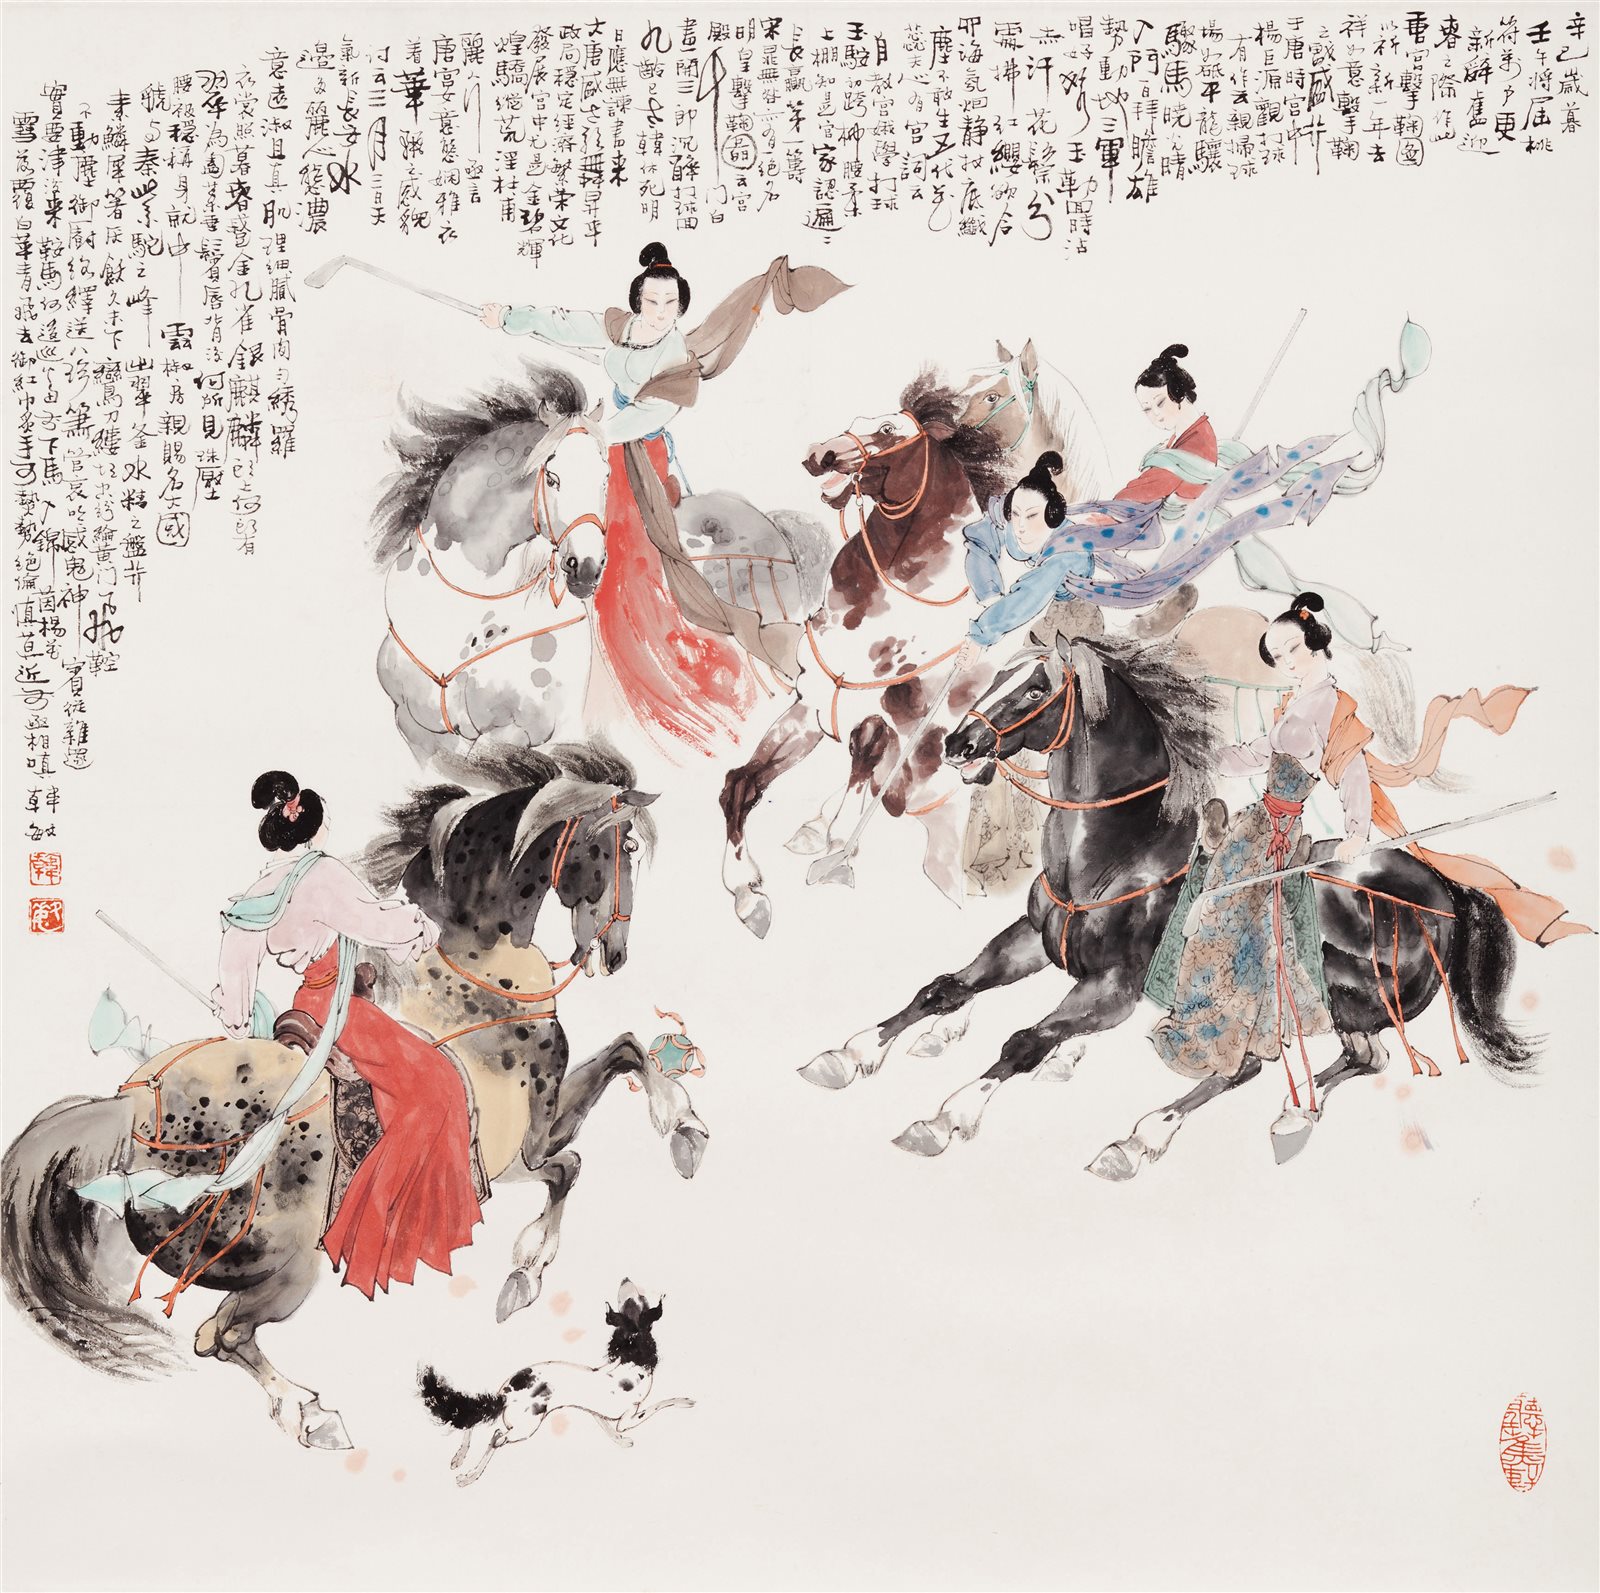 辛巳歲暮
壬午將屆桃
符萬戶更
新辭舊迎
春之際作此
唐宮擊鞠圖
以祈新一年吉
祥如意擊鞠
之戲盛於
于唐時宮中
楊巨源觀打球
有作云親掃球
場如砥平龍驤
驟馬曉光晴
入門百拜瞻雄
勢動地三軍
唱好聲玉勒回時沾
赤汗花鬃分
處拂紅纓欲令
四海氛烟靜杖底纖
塵不敢生五代花
蕊夫人有宮詞云
自教宮娥學打球
玉鞍初跨柳腰柔
上棚知是官家認遍遍
長贏第一籌
宋晁無咎亦有一絕名
明皇擊鞠圖云宮
殿千門白
晝開三郎沉醉打球回
九齡已老韓休死明
日應無諫書來
大唐盛世歌舞昇平
政局穩定經濟繁榮文化
發展宮中尤是金碧輝
煌驕縱荒淫杜甫
麗人行極言
唐宮女意態嫻雅衣
着華麗之盛貌
詩云三月三日天
氣新長安水
邊多麗人態濃
意遠淑且真肌理細膩骨肉勻繡羅
衣裳照暮春蹙金孔雀銀麒麟頭上何所有
翠為㔩葉垂鬢唇背後何所見珠壓
腰衱穩稱身就中雲椒房親賜名大國
虢與秦紫駝之峰出翠釜水精之盤行
素鱗犀箸厭飫久未下鸞刀縷切空紛綸黃門飛鞚
不動塵御廚絡繹送八珍簫管哀吟感鬼神賓從雜遝
實要津後來鞍馬何逡巡當軒下馬入錦茵楊花
雪落覆白蘋青鳥飛去銜紅巾炙手可熱勢絕倫慎莫近前丞相嗔韓敏
韓
敏